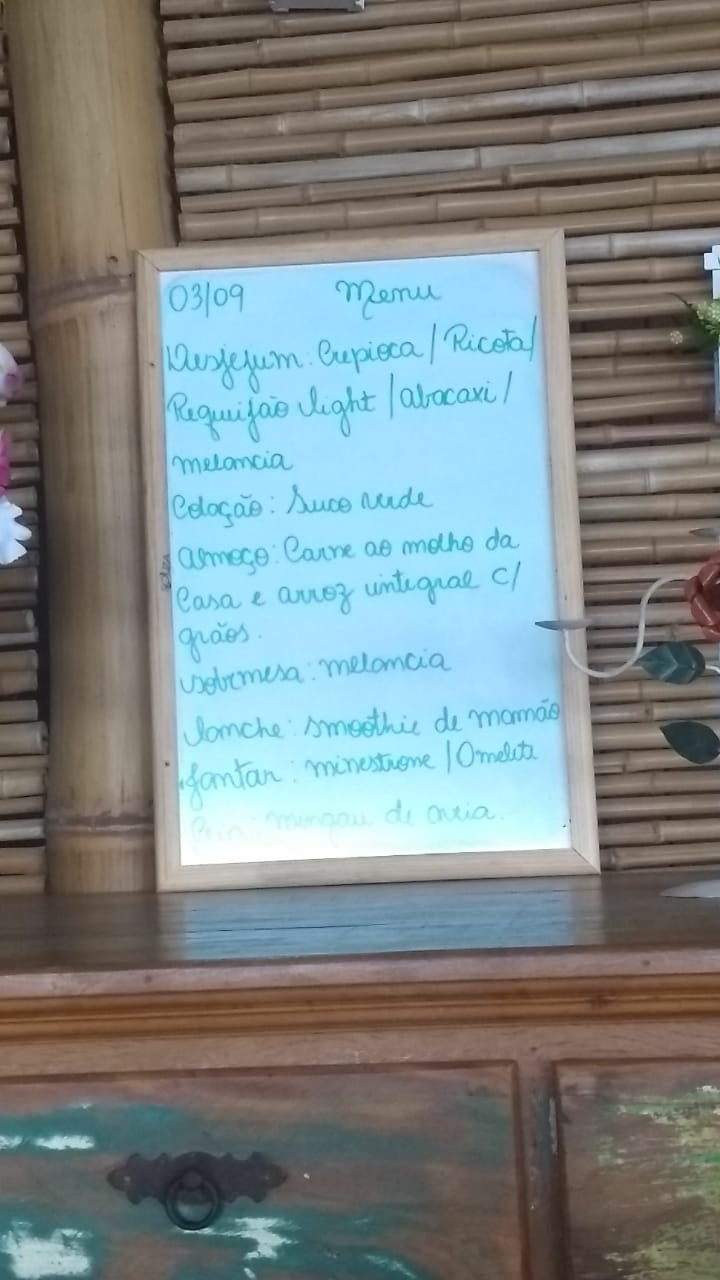 03/09 Menu
Desjejum: Crepioca / Ricota /
Requijão light / abacaxi /
melancia
Colação: Suco verde
Almoço: Carne ao molho da
Casa e arroz integral c/
grãos.
sobremesa: melancia
lanche: smoothie de mamão
Jantar: minestrone / Omelete
Ceia: mingau de aveia.